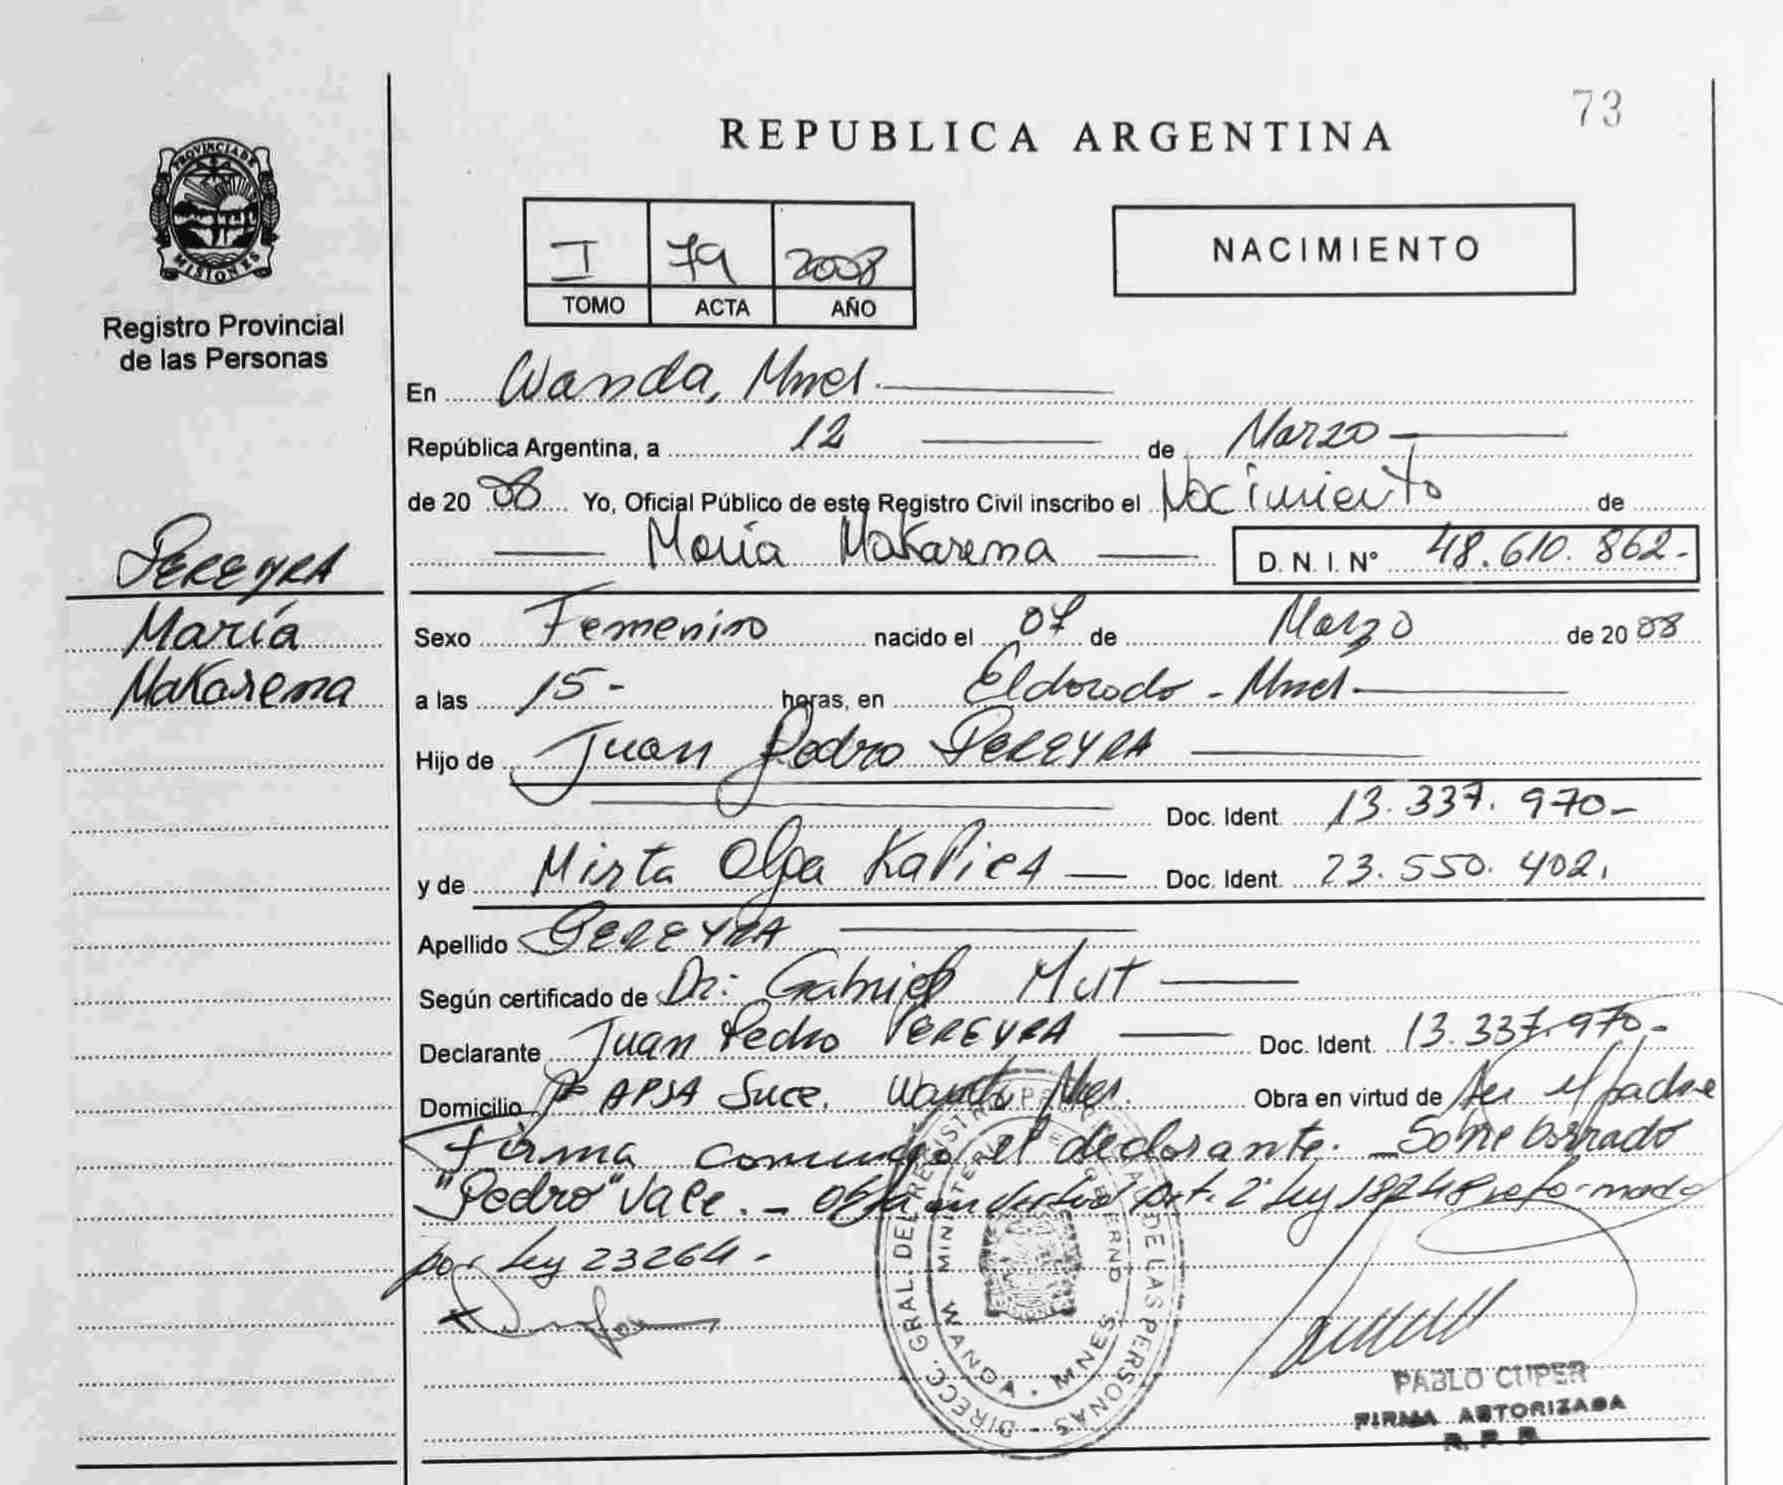 73
REPUBLICA ARGENTINA
PROVINCIA DE
MISIONES
Registro Provincial
de las Personas
I 79 2008
TOMO ACTA AÑO
NACIMIENTO
En Wanda, Mnes.
República Argentina, a 12 de Marzo
de 2008 Yo, Oficial Público de este Registro Civil inscribo el Nacimiento de
María Makarena D.N.I. Nº 48.610.862.-
PEREYRA
María
Makarena
Sexo Femenino nacido el 07 de Marzo de 2008
a las 15- horas, en Eldorado - Mnes.
Hijo de Juan Pedro PEREYRA
Doc. Ident. 13.337.970-
y de Mirta Olga Doc. Ident. 23.550.402.
Apellido PEREYRA
Según certificado de Dr: Gabriel Mut
Declarante Juan Pedro PEREYRA Doc. Ident. 13.337.970-
Domicilio APSA Suce. Wanda Mnes. Obra en virtud de Ser el padre
Firma conmigo el declarante. Sobre borrado
"Pedro" Vale. - Obra en virtud Art. 2º Ley 18248 reformada
por Ley 23264-
DIRECC. GRAL DEL REGISTRO PROVINCIAL DE LAS PERSONAS
MINISTERIO DE GOBIERNO
WANDA - MNES.
PABLO CUPER
FIRMA AUTORIZADA
R. P. P.